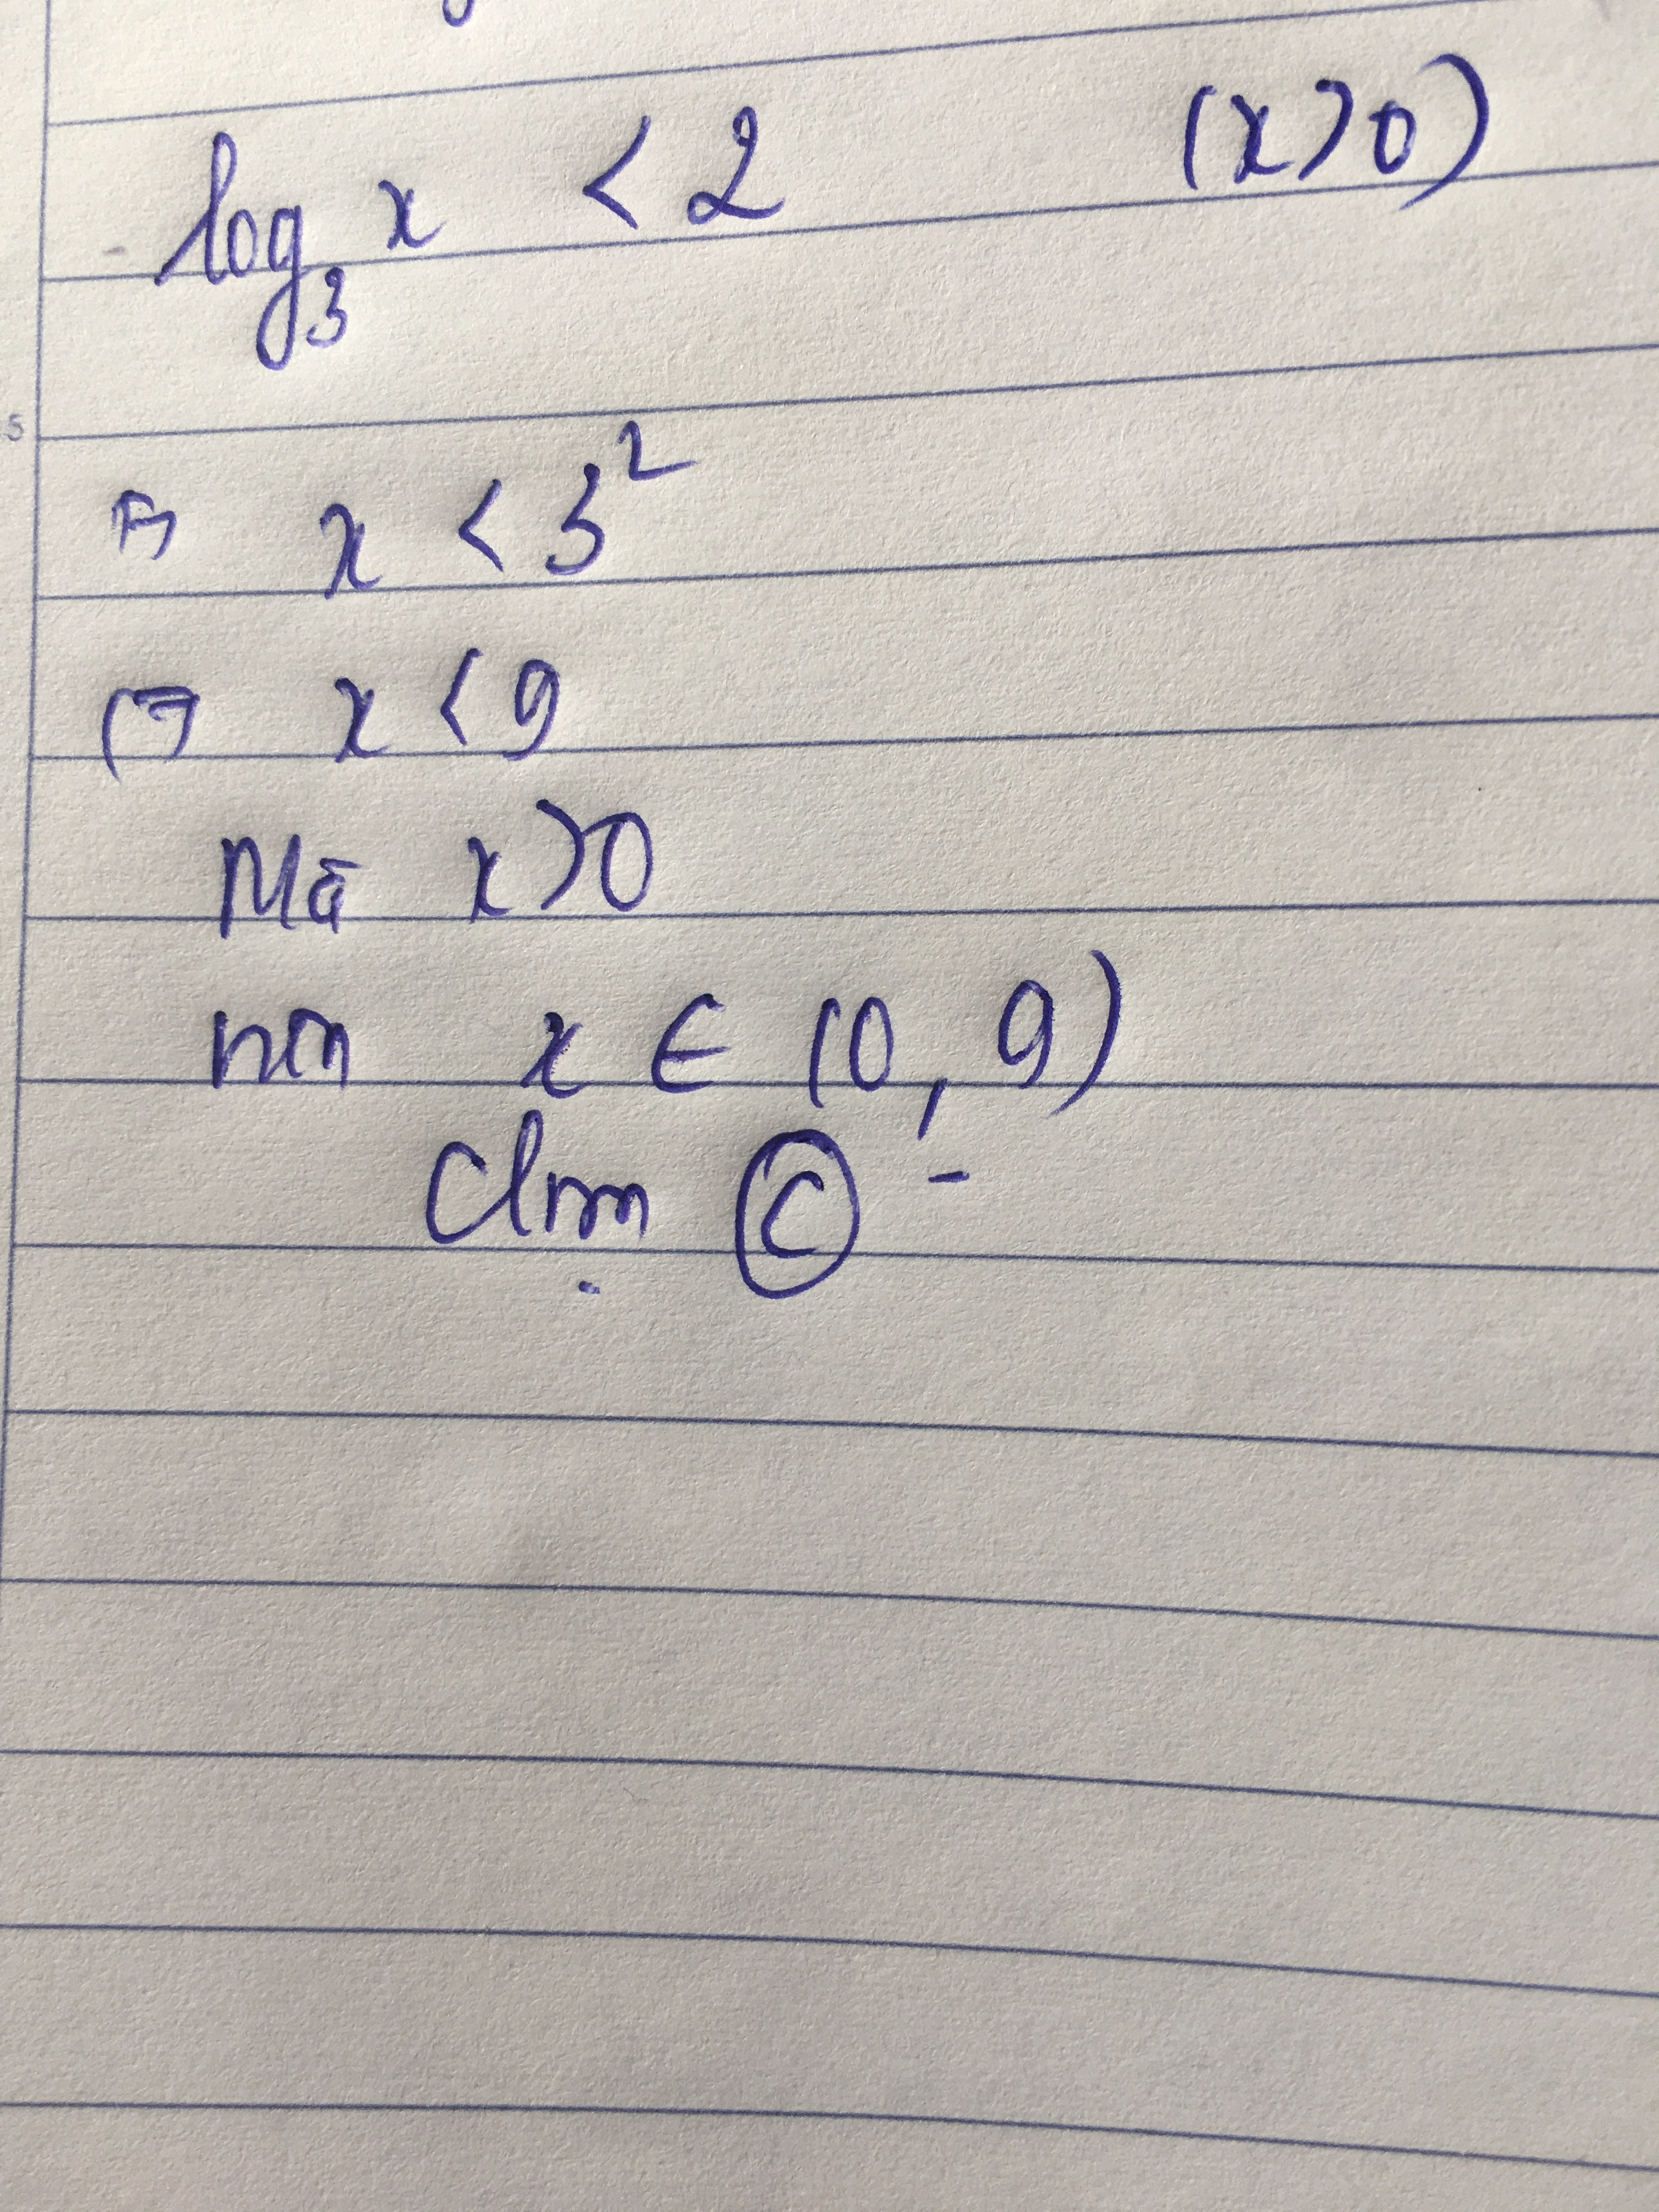 log₃ x < 2 (x > 0)
5
⇔ x < 3²
⇔ x < 9
Mà x > 0
nên x ∈ (0, 9)
Chọn C